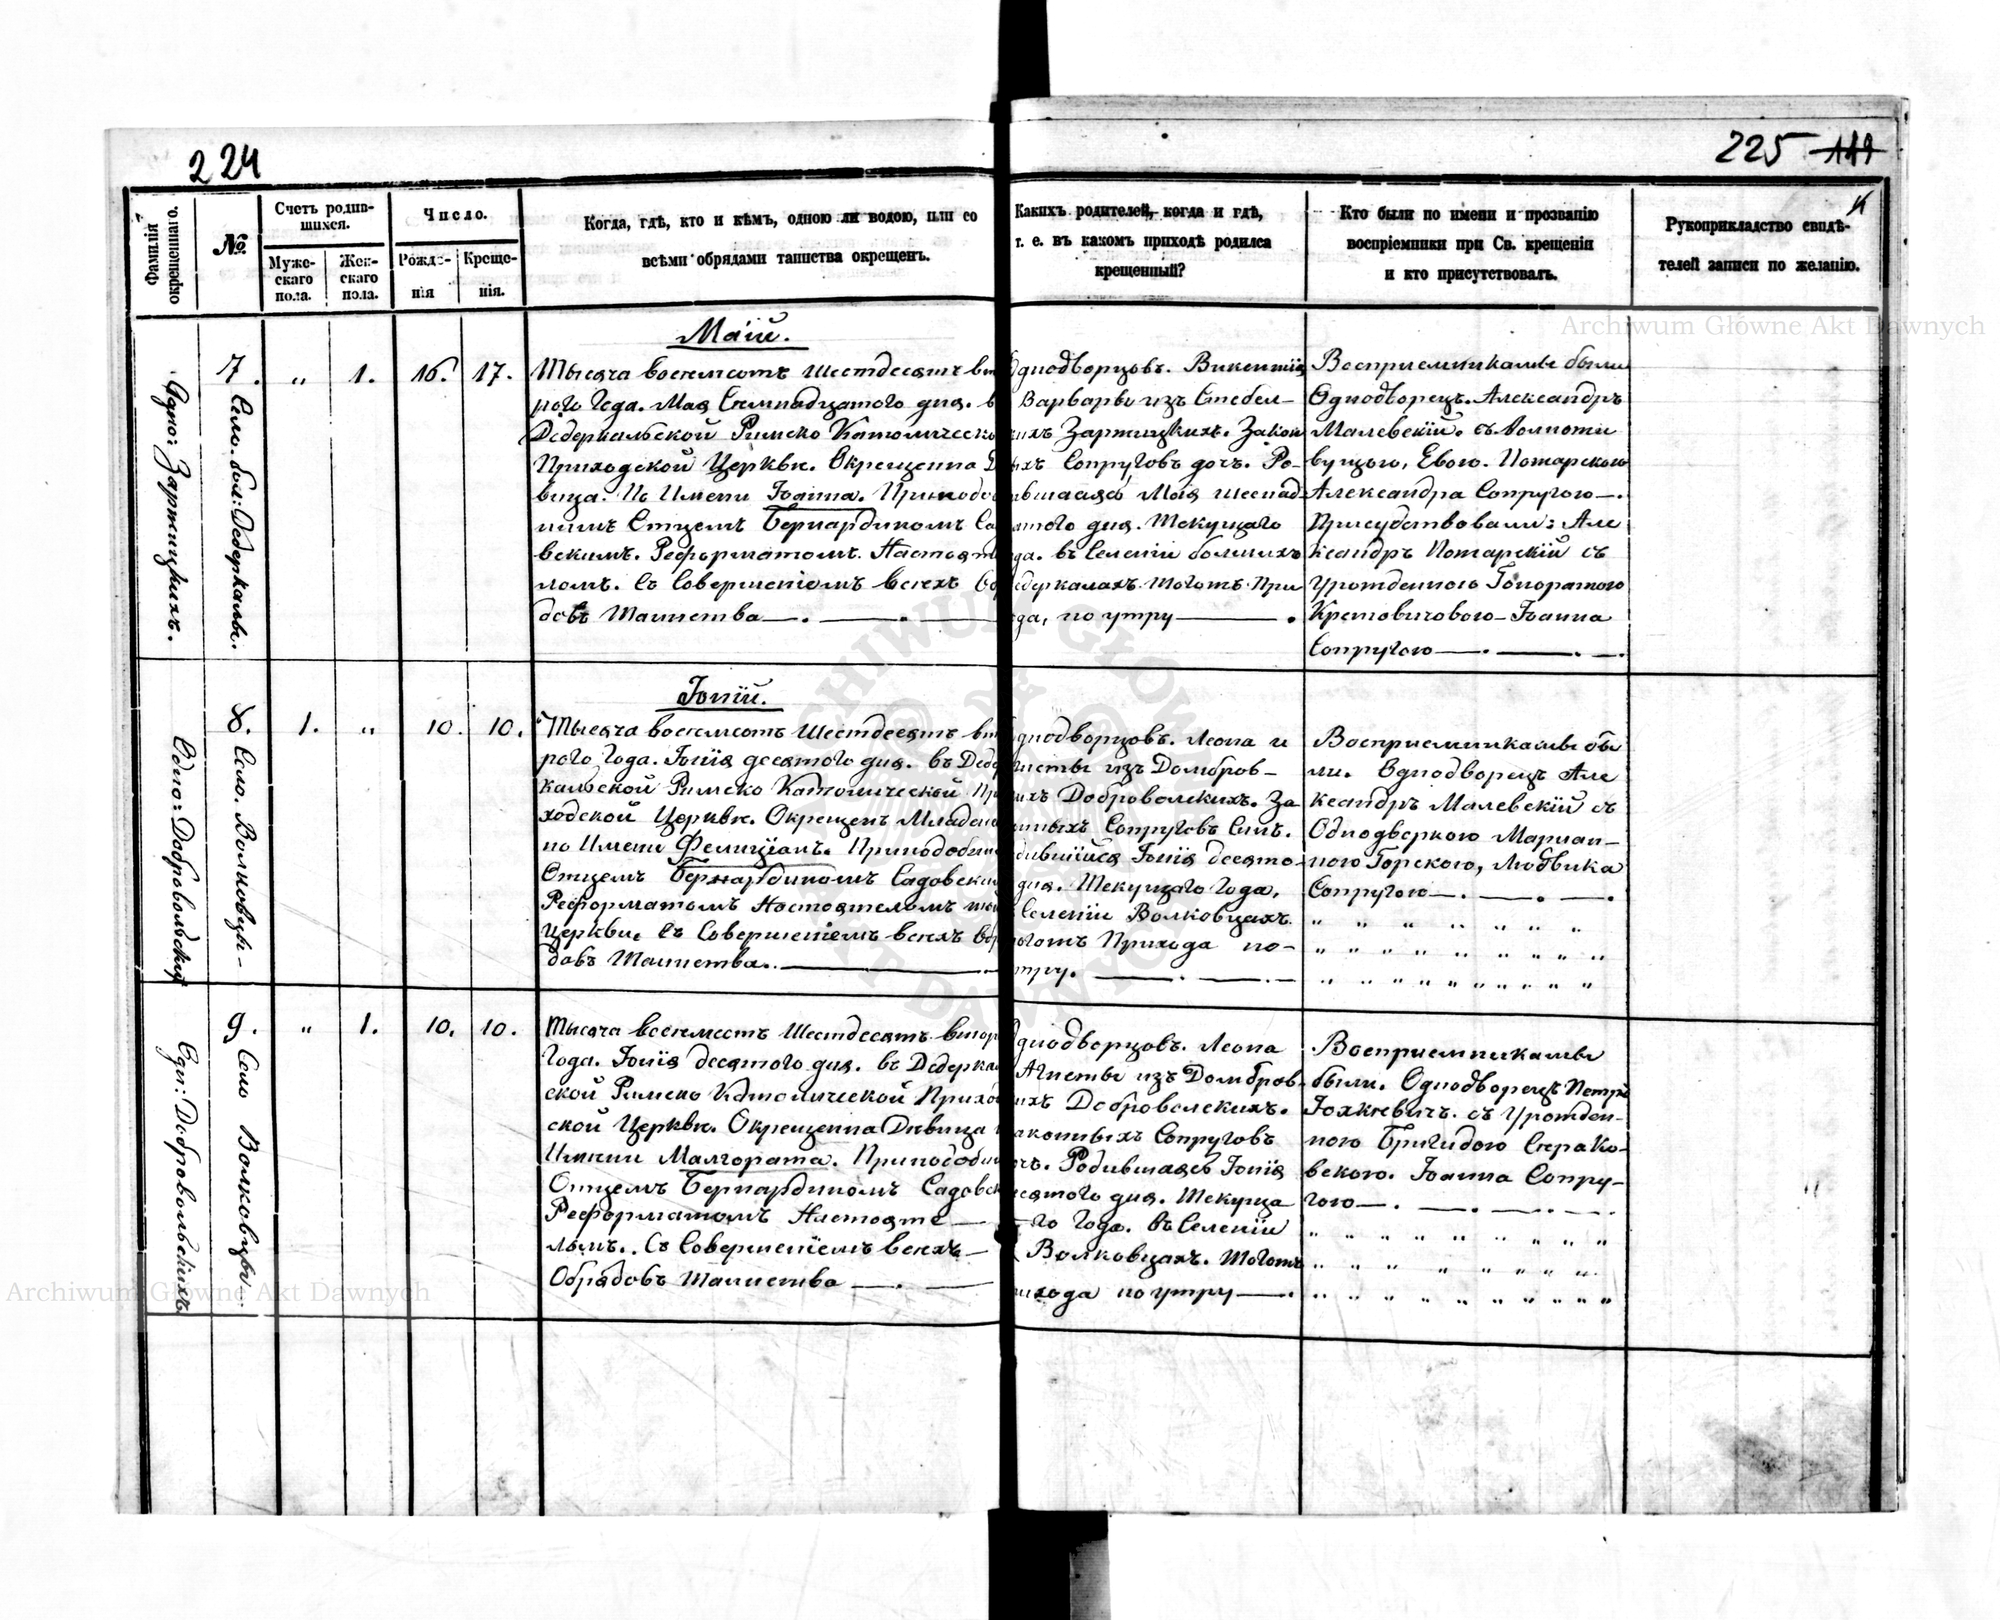 224
225 149
Archiwum Główne Akt Dawnych
Фамилія окрещеннаго.
№
Счетъ родив-
шихся.
Муже-
скаго
пола.
Жен-
скаго
пола.
Число.
Рожде-
нія
Креще-
нія.
Когда, гдѣ, кто и кѣмъ, одною ли водою, или со
всѣми обрядами таинства окрещенъ.
Какихъ родителей, когда и гдѣ,
т. е. въ какомъ приходѣ родился
крещенный?
Кто были по имени и прозванію
воспріемники при Св. крещеніи
и кто присутствовалъ.
Рукоприкладство свидѣ-
телей записи по желанію.
Маій.
Одно: Заржицкихъ.
7. Сел. бол: Дедеркалы.
„ 1. 16. 17.
Тысяча восемсотъ Шестдесятъ вто
рого Года. Мая Семнадцатого дня. в
Дедеркальской Римско Католическо
Приходской Церкви. Окрещенна Д
вица. По Имени Іоанна. Приподоб
нимъ Отцемъ Бернардиномъ Са
вскимъ. Реформатомъ. Настояте
ломъ. Съ Совершеніемъ всехъ Об
довъ Таинства
Однодворцовъ. Викентія
Варвары изъ Стебел-
кихъ Заржицкихъ. Закон
ыхъ Сопруговъ дочь. Ро-
ившаяся Мая шеснад
атого дня. Текущаго
да. въ Селеніи болшихъ
едеркалахъ. Тогожъ При
ода, по утру
Восприемниками были
Однодворецъ. Александръ
Малевскій. съ Волноти
вущою, Евою. Потарскою
Александра Сопругою
Присудствовали: Але
ксандръ Потарскій съ
Урожденною Гоноратою
Кретовичовою Іоанна
Сопругою
Іюній.
Одно: Добровольскій
8. Село. Волковцы
1. „ 10. 10.
Тысяча восемсотъ Шестдесятъ вт
рого Года. Іюнія десятого дня. въ Деде
кальской Римско Католической При
ходской Церкви. Окрещенъ Младене
по Имени Фелиціанъ. Приподобн
Отцемъ Бернардиномъ Садовски
Реформатомъ Настоятеломъ той
Церкви. Съ Совершеніемъ всехъ Обр
довъ Таинства.
днодворцовъ. Леона и
гнеты изъ Домбров-
кихъ Добровольскихъ. За
нныхъ Сопруговъ Сынъ.
дившійся Іюнія десято-
дня. Текущаго Года,
Селеніи Волковцахъ.
огожъ Прихода по-
тру.
Восприемниками бы
ли. Однодворецъ Але
ксандръ Малевскій съ
Однодворкою Мариан-
ною Горскою, Людвика
Сопругою
Одн: Добровольскихъ
9. Село Волковцы
„ 1. 10. 10.
Тысяча восемсотъ Шестдесятъ втор
Года. Іюнія десятого дня. въ Дедерка
ской Римско Католической Прихо
ской Церкви. Окрещенна Дѣвица
Имени Малгората. Приподобн
Отцемъ Бернардиномъ Садовск
Реформатомъ Настояте
ломъ. Съ Совершеніемъ всехъ
Обрядовъ Таинства
днодворцовъ. Леона
Агнеты изъ Домбров-
ихъ Добровольскихъ.
аконныхъ Сопруговъ
очь. Родившаяся Іюнія
есятого дня. Текуща
го Года. въ Селеніи
Волковцахъ. Тогожъ
ихода по утру
Восприемниками
были. Однодворецъ Петръ
съ Урожден-
ною Бригидою Серако-
вскою. Іоанна Сопру-
гою
Archiwum Główne Akt Dawnych
ARCHIWUM GŁÓWNE AKT DAWNYCH